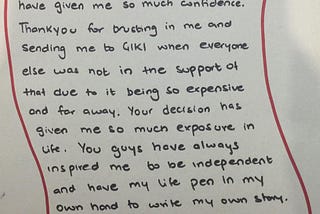 have given me so much confidence.
Thankyou for trusting in me and
sending me to GIKI when everyone
else was not in the support of
that due to it being so expensive
and far away. Your decision has
given me so much exposure in
life. You guys have always
inspired me to be independent
and have my life pen in my
own hand to write my own story.